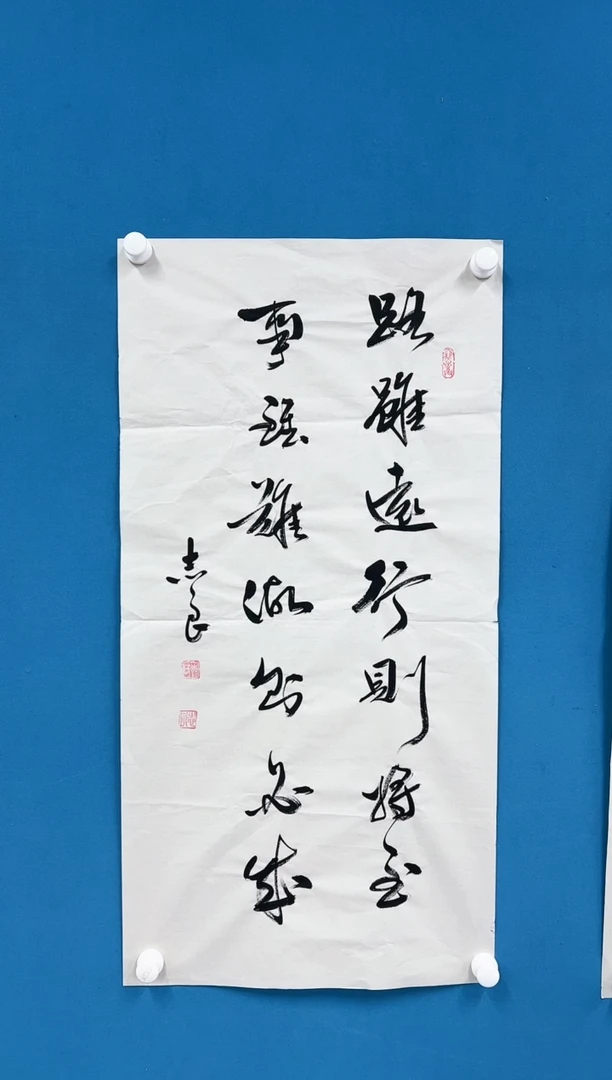 路雖遠行則將至
事雖難做則必成
志良